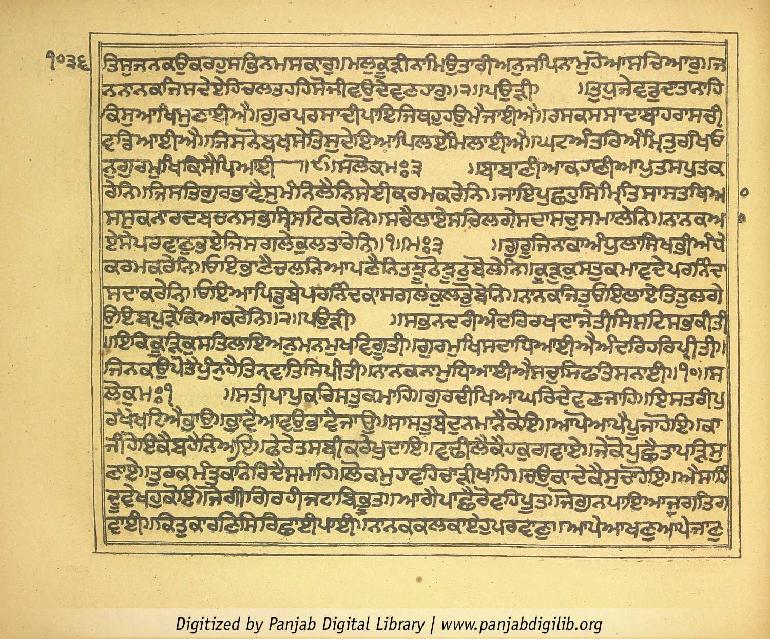 ੧੦੩੬
ਤਿਸੁਜਨਕਉਕਰਹੁਸਭਿਨਮਸਕਾਰੁ॥ਮਲੁਕੂੜੀਨਾਮਿਉਤਾਰੀਅਨੁਜਪਿਨਾਮੁਹੋਆਸਚਿਆਰੁ॥ਜ
ਨਨਾਨਕਜਿਸਦੇਏਹਿਚਲਤਹਹਿਸੋਜੀਵਉਦੇਵਣਹਾਰੁ॥੨॥ਪਉੜੀ ॥ਤੁਧੁਜੇਵਡੁਦਾਤਾਨਾਹਿ
ਕਿਸੁਆਖਿਸੁਣਾਈਐ॥ਗੁਰਪਰਸਾਦੀਪਾਇਜਿਥਹੁਹਉਮੈਜਾਈਐ॥ਰਸਕਸਸਾਦਾਬਾਹਰਾਸਚੀ
ਵਡਿਆਈਐ॥ਜਿਸਨੋਬਖਸੇਤਿਸੁਦੇਇਆਪਿਲਏਮਿਲਾਈਐ॥ਘਟਅੰਤਰਿਅੰਮ੍ਰਿਤੁਰਖਿਓ
ਨੁਗੁਰਮੁਖਿਕਿਸੈਪਿਆਈ ॥੯॥ਸਲੋਕਮਃ੩ ॥ਬਾਬਾਣੀਆਕਹਾਣੀਆਪੁਤਸਪੁਤਕ
ਰੇਨਿ॥ਜਿਸਤਿਗੁਰਭਾਵੈਸੁਮੰਨਿਲੈਨਿਸੇਈਕਰਮਕਰੇਨਿ॥ਜਾਇਪੁਛਹੁਸਿਮ੍ਰਿਤਿਸਾਸਤਬਿਅ
ਸਸੁਕਨਾਰਦਬਚਨਸਭਸ੍ਰਿਸਟਿਕਰੇਨਿ॥ਸਚੈਲਾਏਸਚਿਲਗੇਸਦਾਸਚੁਸਮਾਲੇਨਿ॥ਨਾਨਕਅ
ਏਸੇਪਰਵਾਣੁਭਏਜਿਸਗਲੇਕੁਲਤਾਰੇਨਿ॥੧॥ਮਃ੩ ॥ਗੁਰੂਜਿਨਕਾਅੰਧੁਲਾਸਿਖਭੀਅੰਧੇ
ਕਰਮਕਰੇਨਿ॥ਓਇਭਾਣੈਚਲਨਿਆਪਣੈਨਿਤਝੂਠੋਝੂਠੁਬੋਲੇਨਿ॥ਕੂੜੁਕੁਸਤੁਕਮਾਵਦੇਪਰਨਿੰਦਾ
ਸਦਾਕਰੇਨਿ॥ਓਇਆਪਿਡੁਬੇਪਰਨਿੰਦਕਾਸਗਲੇਕੁਲਡੋਬੇਨਿ॥ਨਾਨਕਜਿਤੁਓਇਲਾਏਤਿਤੁਲਗੇ
ਉਇਬਪੁੜੇਕਿਆਕਰੇਨਿ॥੨॥ਪਉੜੀ ॥ਸਭਨਦਰੀਅੰਦਰਿਰਖਦਾਜੇਤੀਸਿਸਟਿਸਭਕੀਤੀ
॥ਇਕਿਕੂੜਿਕੁਸਤਿਲਾਇਅਨੁਮਨਮੁਖਵਿਗੁਤੀ॥ਗੁਰਮੁਖਿਸਦਾਧਿਆਈਐਅੰਦਰਿਹਰਿਪ੍ਰੀਤੀ॥
ਜਿਨਕਉਪੋਤੈਪੁੰਨੁਹੈਤਿਨਵਾਤਿਸਿਪੀਤੀ॥ਨਾਨਕਨਾਮੁਧਿਆਈਐਸਚੁਸਿਫਤਿਸਨਾਈ॥੧੦॥ਸ
ਲੋਕੁਮਃ੧ ॥ਸਤੀਪਾਪੁਕਰਿਸਤੁਕਮਾਹਿ॥ਗੁਰਦੀਖਿਆਘਰਿਦੇਵਣਜਾਹਿ॥ਇਸਤਰੀਪੁ
ਰਖੈਖਟਿਐਭਾਉ॥ਭਾਵੈਆਵਉਭਾਵੈਜਾਉ॥ਸਾਸਤੁਬੇਦੁਨਮਾਨੈਕੋਇ॥ਆਪੋਆਪੈਪੂਜਾਹੋਇ॥ਕਾ
ਜੀਹੋਇਕੈਬਹੈਨਿਆਇ॥ਫੇਰੇਤਸਬੀਕਰੇਖੁਦਾਇ॥ਵਢੀਲੈਕੈਹਕੁਗਵਾਏ॥ਜੇਕੋਪੁਛੈਤਾਪੜਿਸੁ
ਣਾਏ॥ਤੁਰਕਮੰਤ੍ਰੁਕਨਿਰਿਦੈਸਮਾਹਿ॥ਲੋਕਮੁਹਾਵਹਿਚਾੜੀਖਾਹਿ॥ਚਉਕਾਦੇਕੈਸੁਚਾਹੋਇ॥ਐਸਾਹਿੰ
ਦੂਵੇਖਹੁਕੋਇ॥ਜੋਗੀਗਿਰਹੀਜਟਾਬਿਭੂਤ॥ਆਗੈਪਾਛੈਰੋਵਹਿਪੂਤ॥ਜੋਗੁਨਪਾਇਆਜੁਗਤਿਗ
ਵਾਈ॥ਕਿਤੁਕਾਰਣਿਸਿਰਿਛਾਈਪਾਈ॥ਨਾਨਕਕਲਿਕਾਏਹੁਪਰਵਾਣੁ॥ਆਪੇਆਖਣੁਆਪੇਜਾਣੁ
Digitized by Panjab Digital Library | www.panjabdigilib.org